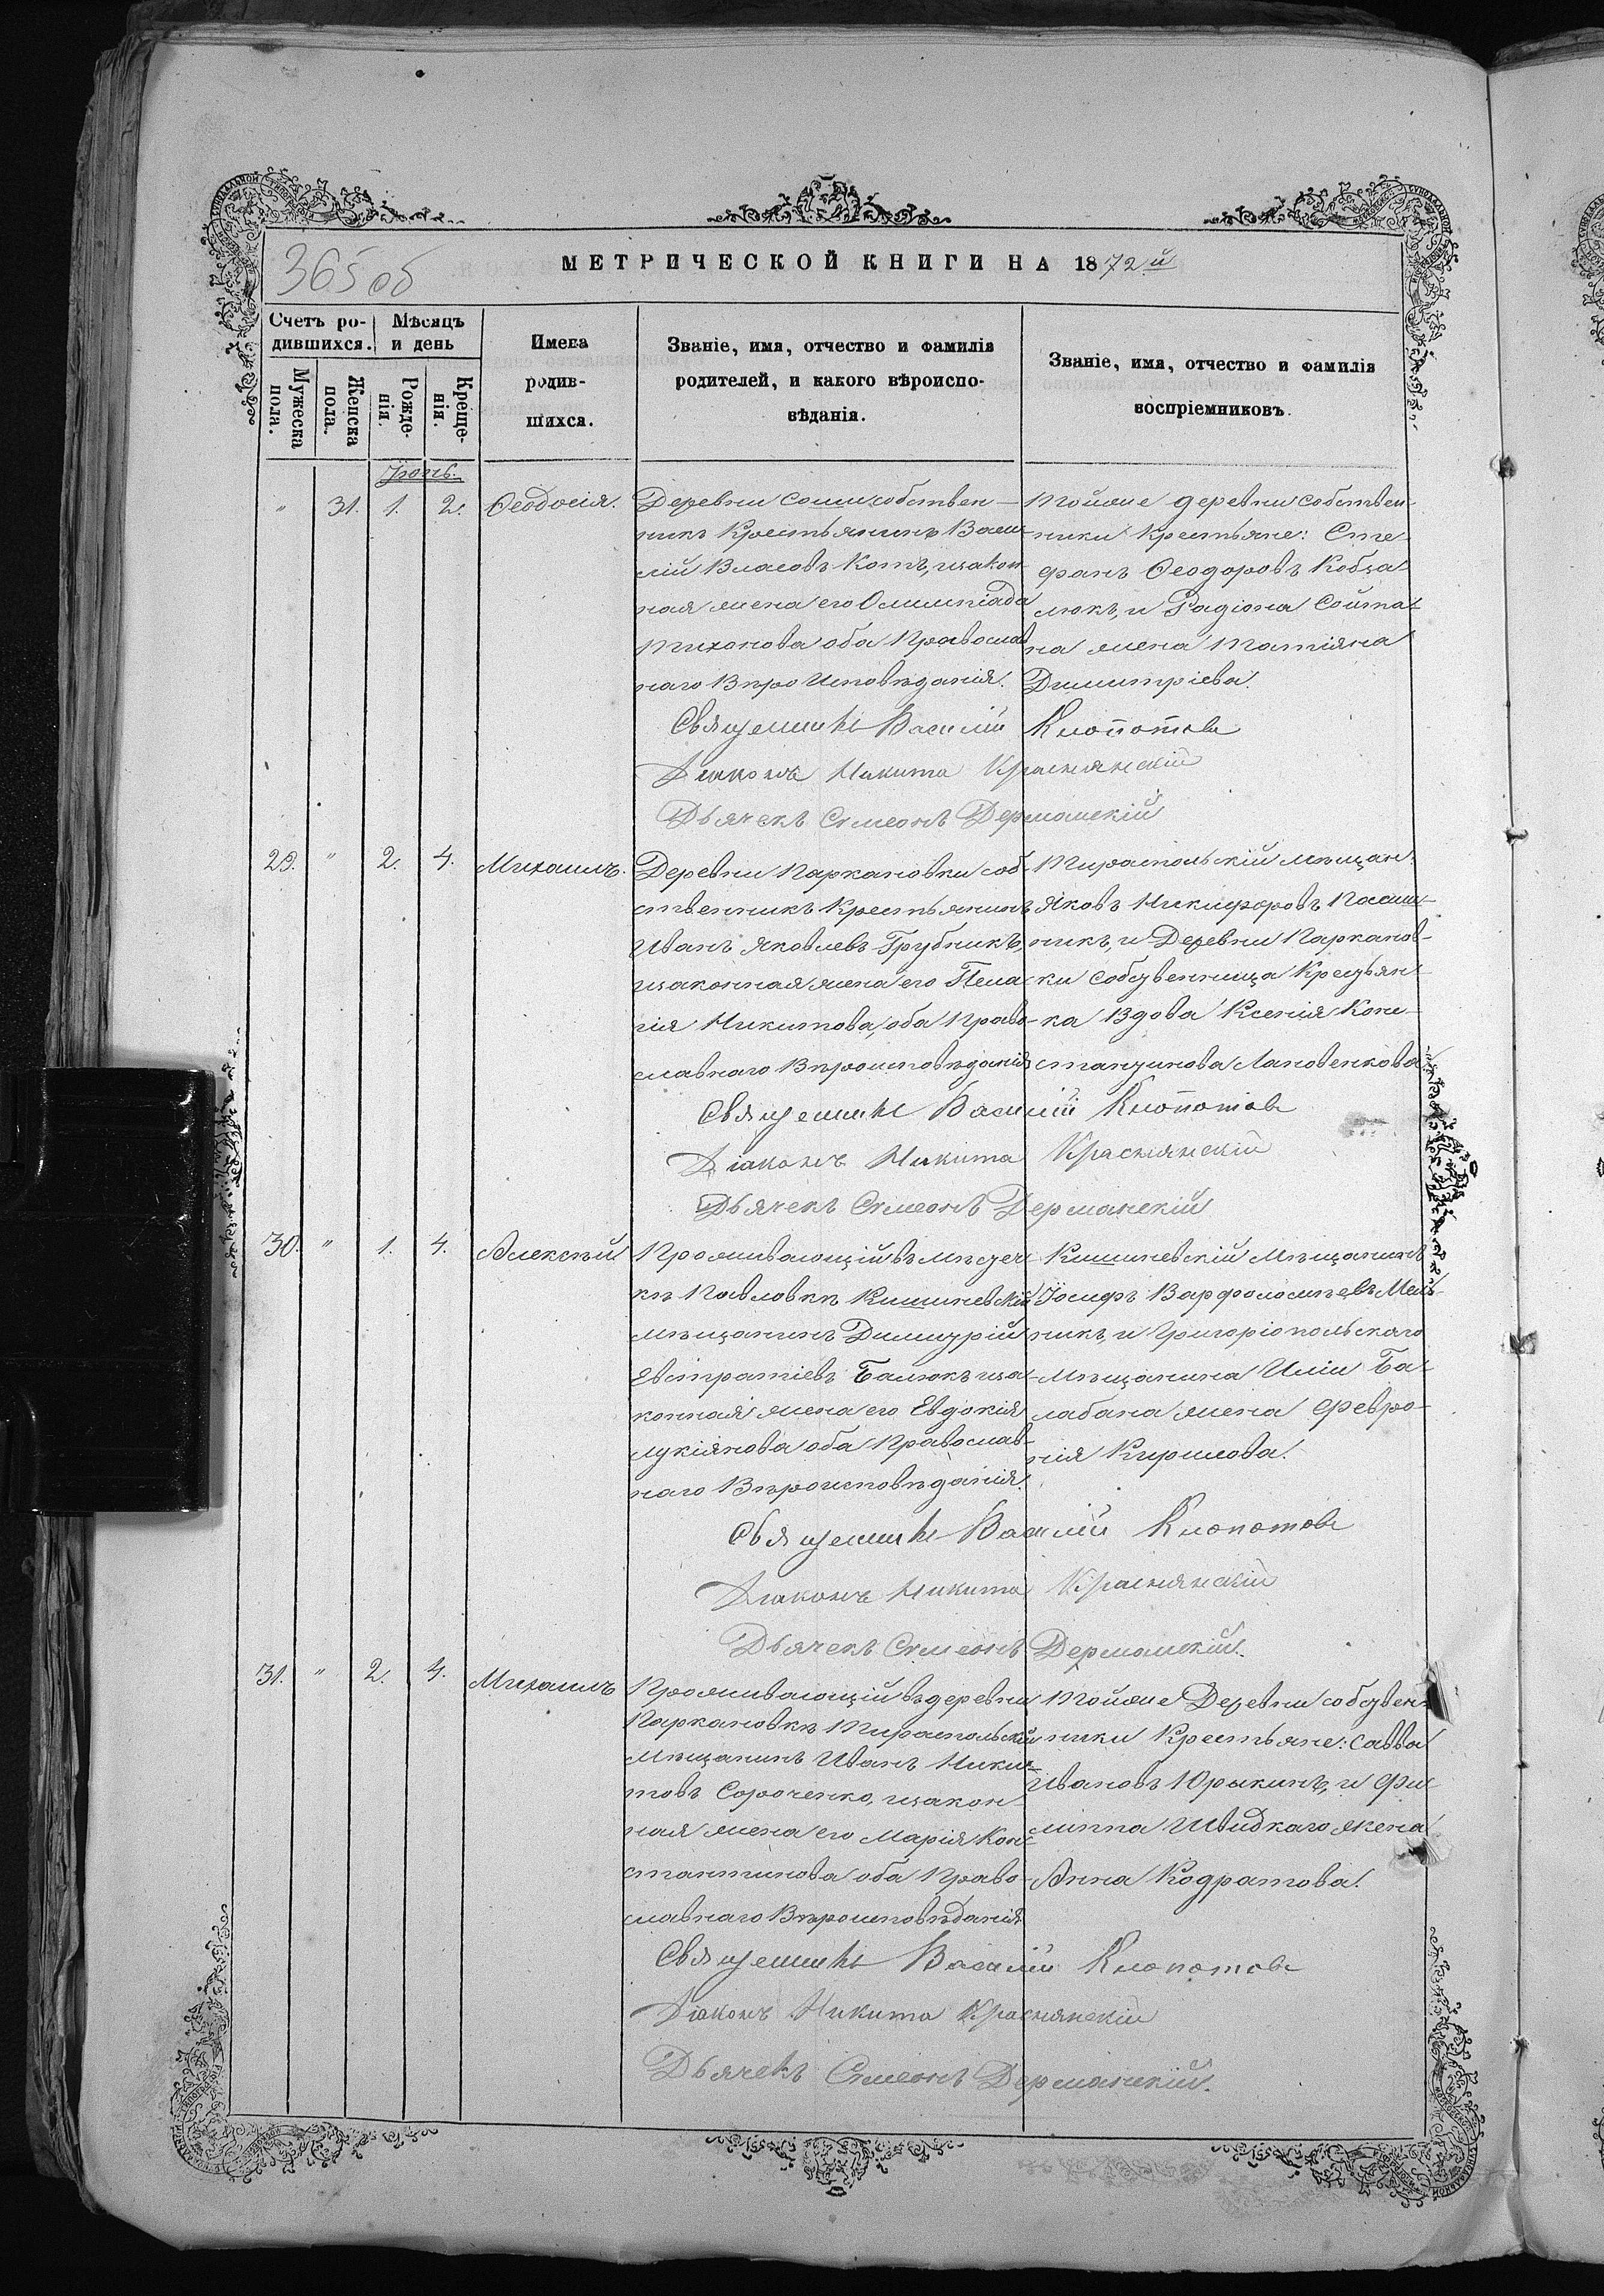 365 об
МЕТРИЧЕСКОЙ КНИГИ НА 1872й
Счетъ ро-
дившихся.
Мѣсяцъ
и день
Имена
родив-
шихся.
Званіе, имя, отчество и фамилія
родителей, и какого вѣроиспо-
вѣданія.
Званіе, имя, отчество и фамилія
воспріемниковъ.
Мужеска
пола.
Женска
пола.
Рожде-
нія.
Креще-
нія.
Іюнь.
" 31. 1. 2. Ѳеодосія.
Деревни собствен-
никъ Крестьянинъ Васи-
лій Власовъ Котъ, изакон
ная жена его Олимпіада
Тихонова оба Православ
наго ВѣроИсповѣданія.
Тойже деревни собствен-
ники Крестьяне: Сте-
фанъ Ѳеодоровъ Кобца-
люкъ, и Радіона Сойта-
на жена Татіяна
Димитріева.
Священникъ Василій Клопотовъ
Діаконъ Никита Краснянскій
Дьячекъ Симеонъ Дерманскій
29. " 2. 4. Михаилъ.
Деревни Паркановки соб-
ственникъ Крестьянинъ
Иванъ Яковлевъ Грубникъ,
изаконная жена его Пела
гія Никитова, оба Право-
славнаго Вѣроисповѣданія
Тираспольскій мѣщан.
Яковъ Никифоровъ Пасич-
никъ, и Деревни Парканов-
ки собственница Крестьян-
ка Вдова Ксенія Кон-
стантинова Лановенкова
Священникъ Василій Клопотовъ
Діаконъ Никита Краснянскій
Дьячекъ Симеонъ Дерманскій
30. " 1. 4. Алексѣй
Проживающій въ мѣстеч-
кѣ Павловкѣ Кишиневскій
мѣщанинъ Димитрій
Евстратіевъ Балюкъ иза-
конная жена его Евдокія
Лукіянова оба Православ-
наго Вѣроисповѣданія.
Кишиневскій Мѣщанинъ
Іосифъ Варфоломѣевъ Мель-
никъ, и Григоріопольскаго
Мѣщанина Иліи Ба-
лабана жена Февро-
нія Кирилова.
Священникъ Василій Клопотовъ
Діаконъ Никита Краснянскій
Дьячекъ Симеонъ Дерманскій.
31. " 2. 4. Михаилъ
Проживающій въ деревни
Паркановкѣ Тираспольскій
Мѣщанинъ Иванъ Ники-
товъ Сороченко, изакон-
ная жена его Марія Кон-
стантинова оба Право-
славнаго Вѣроисповѣданія
Тойже Деревни собствен-
ники Крестьяне: Савва
Ивановъ Юрыкинъ, и Фи-
липпа Швидкаго жена
Анна Кодратова.
Священникъ Василій Клопотовъ
Діаконъ Никита Краснянскій
Дьячекъ Симеонъ Дерманскій.